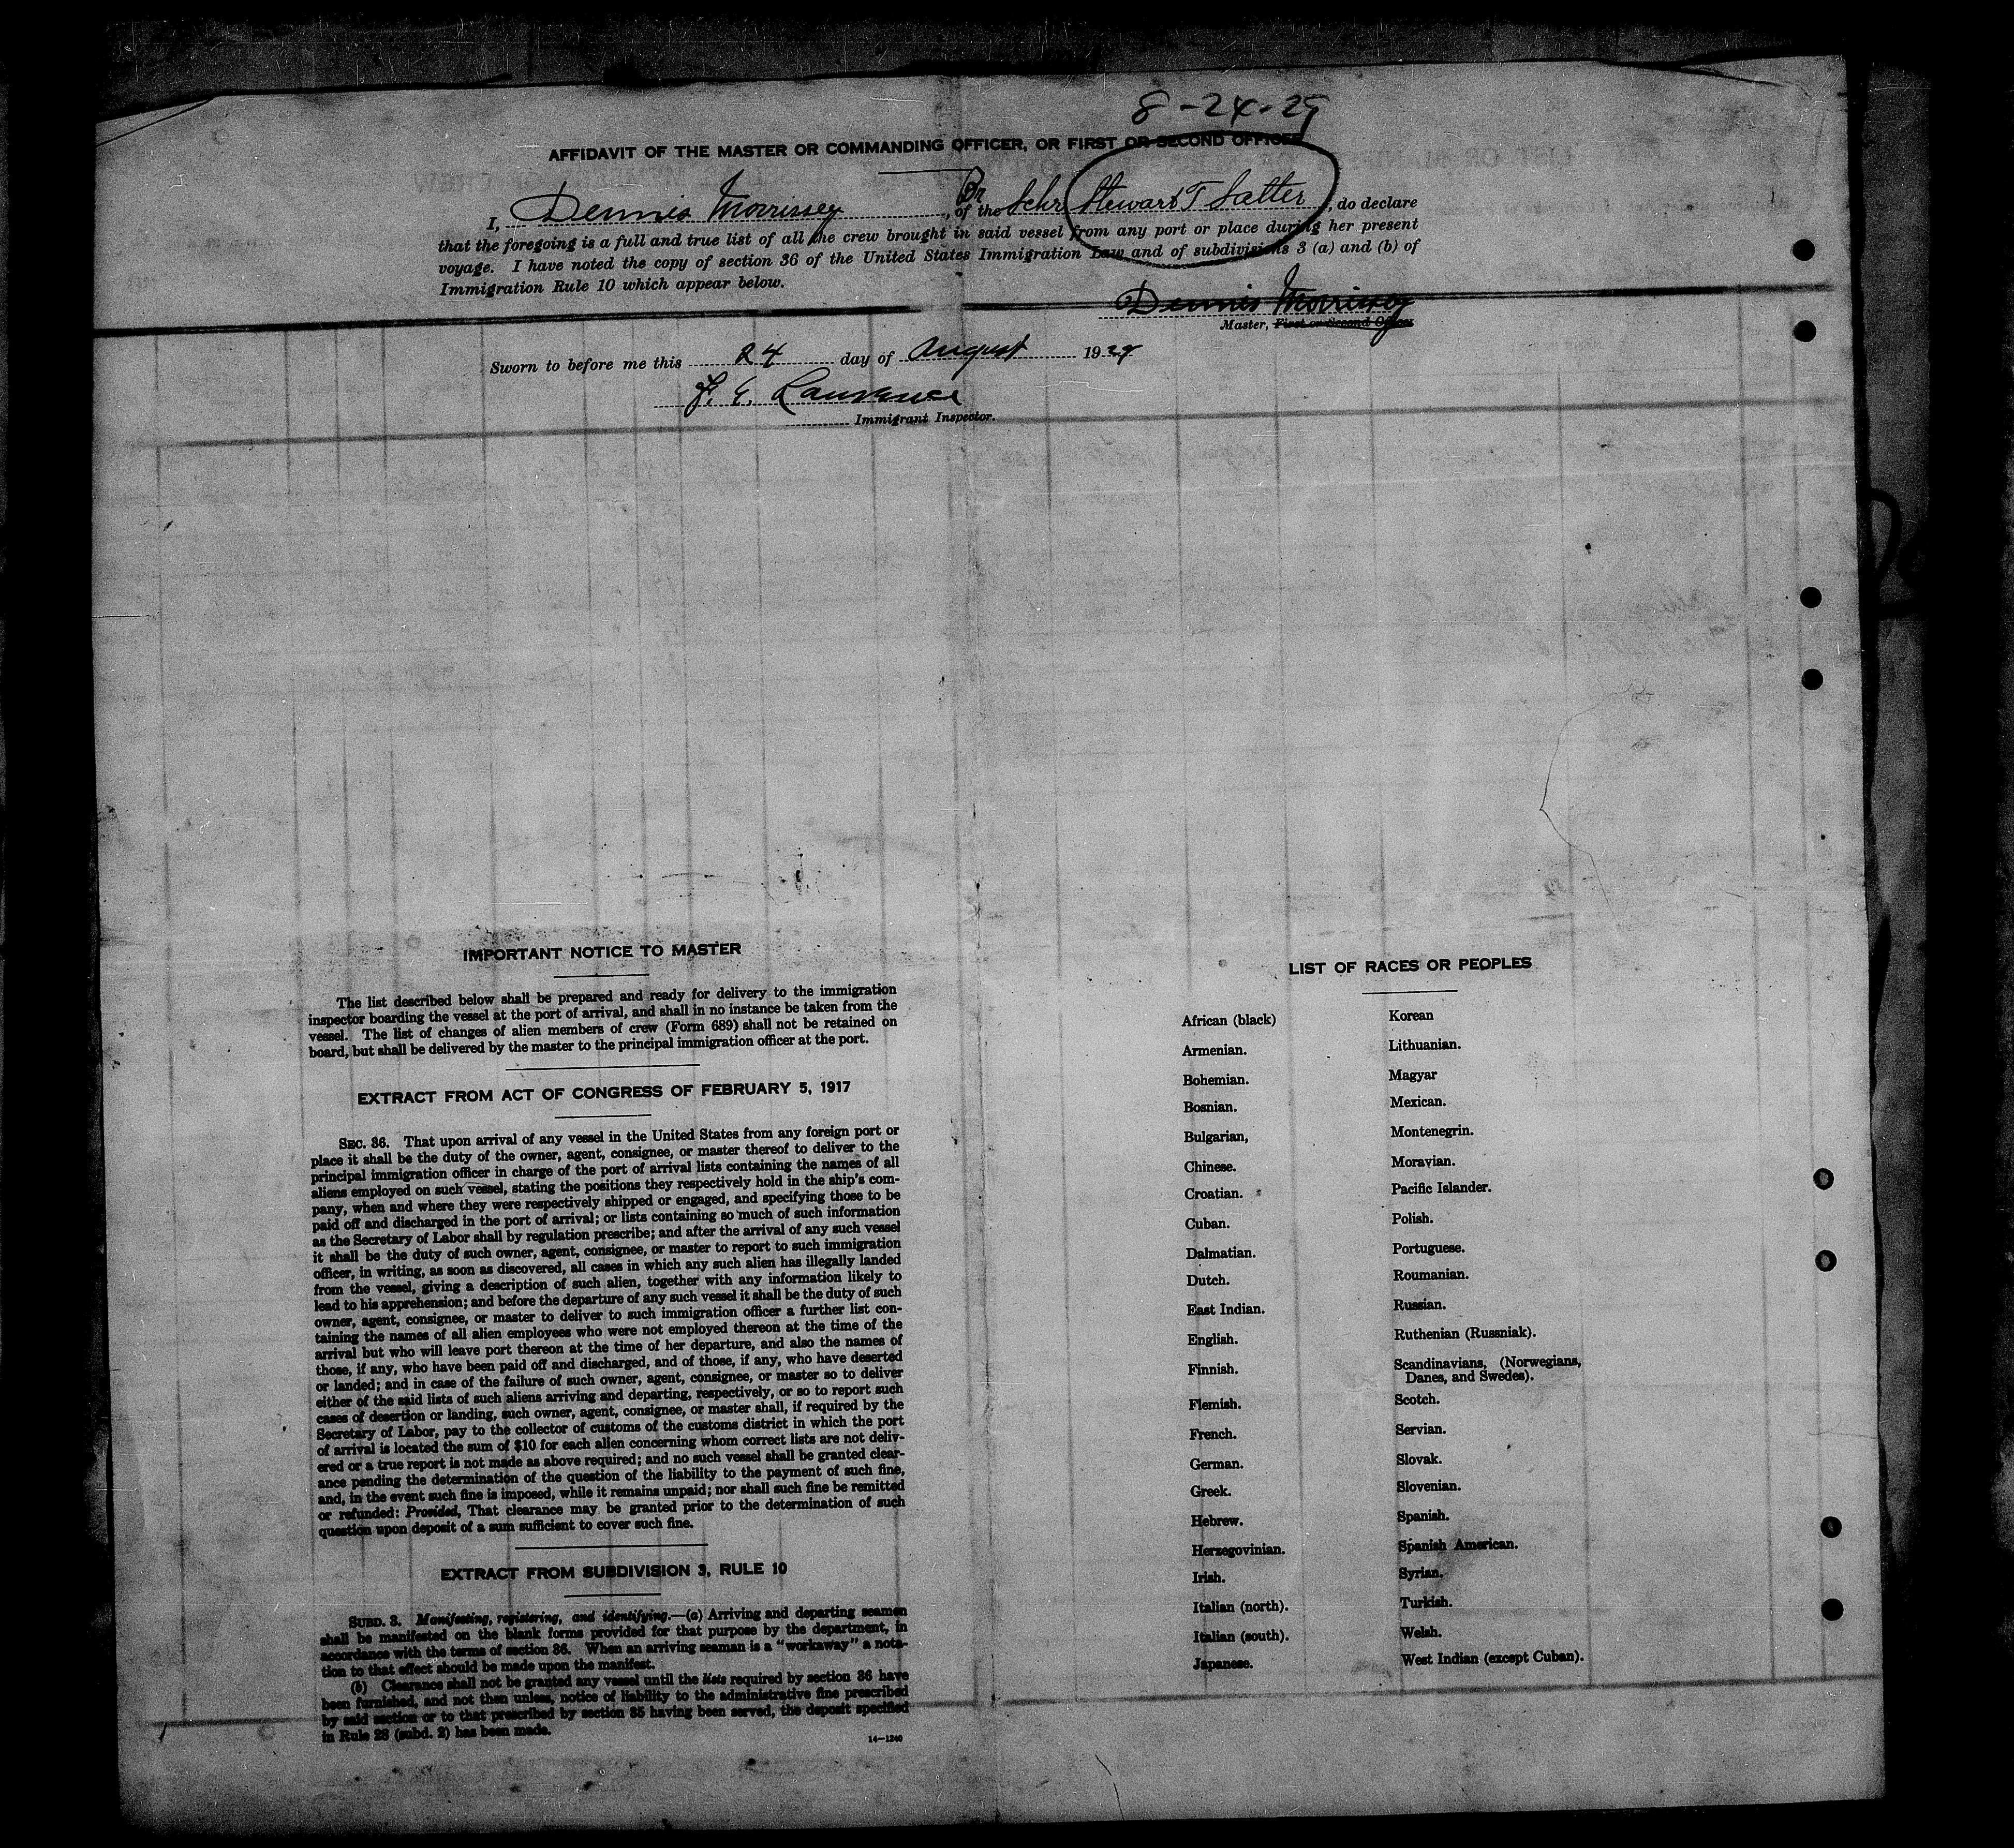 8-24-29
AFFIDAVIT OF THE MASTER OR COMMANDING OFFICER, OR FIRST OR SECOND OFFICER
I, Dennis Morrissey, of the Br Schr Stewart T Salter, do declare
that the foregoing is a full and true list of all the crew brought in said vessel from any port or place during her present
voyage. I have noted the copy of section 36 of the United States Immigration Law and of subdivisions 3 (a) and (b) of
Immigration Rule 10 which appear below.
Dennis Morrissey
Master, First or Second Officer
Sworn to before me this 24 day of August 1929
Immigrant Inspector.
IMPORTANT NOTICE TO MASTER
The list described below shall be prepared and ready for delivery to the immigration
inspector boarding the vessel at the port of arrival, and shall in no instance be taken from the
vessel. The list of changes of alien members of crew (Form 689) shall not be retained on
board, but shall be delivered by the master to the principal immigration officer at the port.
EXTRACT FROM ACT OF CONGRESS OF FEBRUARY 5, 1917
SEC. 36. That upon arrival of any vessel in the United States from any foreign port or
place it shall be the duty of the owner, agent, consignee, or master thereof to deliver to the
principal immigration officer in charge of the port of arrival lists containing the names of all
aliens employed on such vessel, stating the positions they respectively hold in the ship's com-
pany, when and where they were respectively shipped or engaged, and specifying those to be
paid off and discharged in the port of arrival; or lists containing so much of such information
as the Secretary of Labor shall by regulation prescribe; and after the arrival of any such vessel
it shall be the duty of such owner, agent, consignee, or master to report to such immigration
officer, in writing, as soon as discovered, all cases in which any such alien has illegally landed
from the vessel, giving a description of such alien, together with any information likely to
lead to his apprehension; and before the departure of any such vessel it shall be the duty of such
owner, agent, consignee, or master to deliver to such immigration officer a further list con-
taining the names of all alien employees who were not employed thereon at the time of the
arrival but who will leave port thereon at the time of her departure, and also the names of
those, if any, who have been paid off and discharged, and of those, if any, who have deserted
or landed; and in case of the failure of such owner, agent, consignee, or master so to deliver
either of the said lists of such aliens arriving and departing, respectively, or so to report such
cases of desertion or landing, such owner, agent, consignee, or master shall, if required by the
Secretary of Labor, pay to the collector of customs of the customs district in which the port
of arrival is located the sum of $10 for each alien concerning whom correct lists are not deliv-
ered or a true report is not made as above required; and no such vessel shall be granted clear-
ance pending the determination of the question of the liability to the payment of such fine,
and, in the event such fine is imposed, while it remains unpaid; nor shall such fine be remitted
or refunded: Provided, That clearance may be granted prior to the determination of such
question upon deposit of a sum sufficient to cover such fine.
EXTRACT FROM SUBDIVISION 3, RULE 10
SUBD. 3. Manifesting, registering, and identifying.—(a) Arriving and departing seamen
shall be manifested on the blank forms provided for that purpose by the department, in
accordance with the terms of section 36. When an arriving seaman is a "workaway" a nota-
tion to that effect should be made upon the manifest.
(b) Clearance shall not be granted any vessel until the lists required by section 36 have
been furnished, and not then unless, notice of liability to the administrative fine prescribed
by said section or to that prescribed by section 35 having been served, the deposit specified
in Rule 28 (subd. 2) has been made.
14—1240
LIST OF RACES OR PEOPLES
African (black)
Armenian.
Bohemian.
Bosnian.
Bulgarian,
Chinese.
Croatian.
Cuban.
Dalmatian.
Dutch.
East Indian.
English.
Finnish.
Flemish.
French.
German.
Greek.
Hebrew.
Herzegovinian.
Irish.
Italian (north).
Italian (south).
Japanese.
Korean
Lithuanian.
Magyar
Mexican.
Montenegrin.
Moravian.
Pacific Islander.
Polish.
Portuguese.
Roumanian.
Russian.
Ruthenian (Russniak).
Scandinavians, (Norwegians,
Danes, and Swedes).
Scotch.
Servian.
Slovak.
Slovenian.
Spanish.
Spanish American.
Syrian.
Turkish.
Welsh.
West Indian (except Cuban).